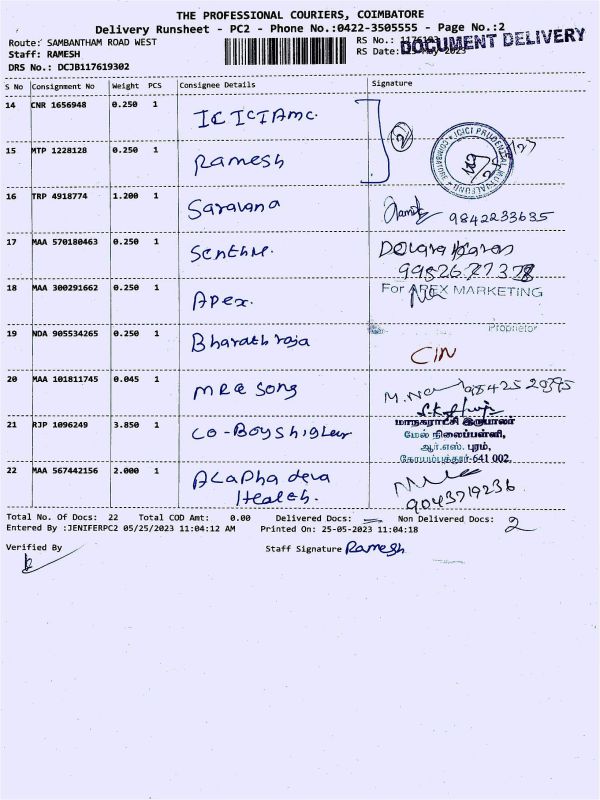 THE PROFESSIONAL COURIERS, COIMBATORE
Delivery Runsheet - PC2 - Phone No.:0422-3505555 - Page No.:2
Route: SAMBANTHAM ROAD WEST
RS No.: 1176193
DOCUMENT DELIVERY
Staff: RAMESH
RS Date: 25-May-2023
DRS No.: DCJB117619302
S No Consignment No Weight PCS Consignee Details Signature
14 CNR 1656948 0.250 1 ICICI Amc.
2
ICICI PRUDENTIAL MUTUAL FUND COIMBATORE
15 MTP 1228128 0.250 1 Ramesh
16 TRP 4918774 1.200 1 Saravana 9842233635
17 MAA 570180463 0.250 1 Senthil.
18 MAA 300291662 0.250 1 Apex.
For APEX MARKETING
Proprietor
19 NDA 905534265 0.250 1 Bharath raja
20 MAA 101811745 0.045 1
21 RJP 1096249 3.850 1
மாநகராட்சி இருபாலர்
மேல் நிலைப்பள்ளி,
ஆர்.எஸ். புரம்,
கோயம்புத்தூர்-641 002.
22 MAA 567442156 2.000 1
Health.
Total No. Of Docs: 22 Total COD Amt: 0.00 Delivered Docs: Non Delivered Docs: 2
Entered By :JENIFERPC2 05/25/2023 11:04:12 AM Printed On: 25-05-2023 11:04:18
Verified By Staff Signature Ramesh